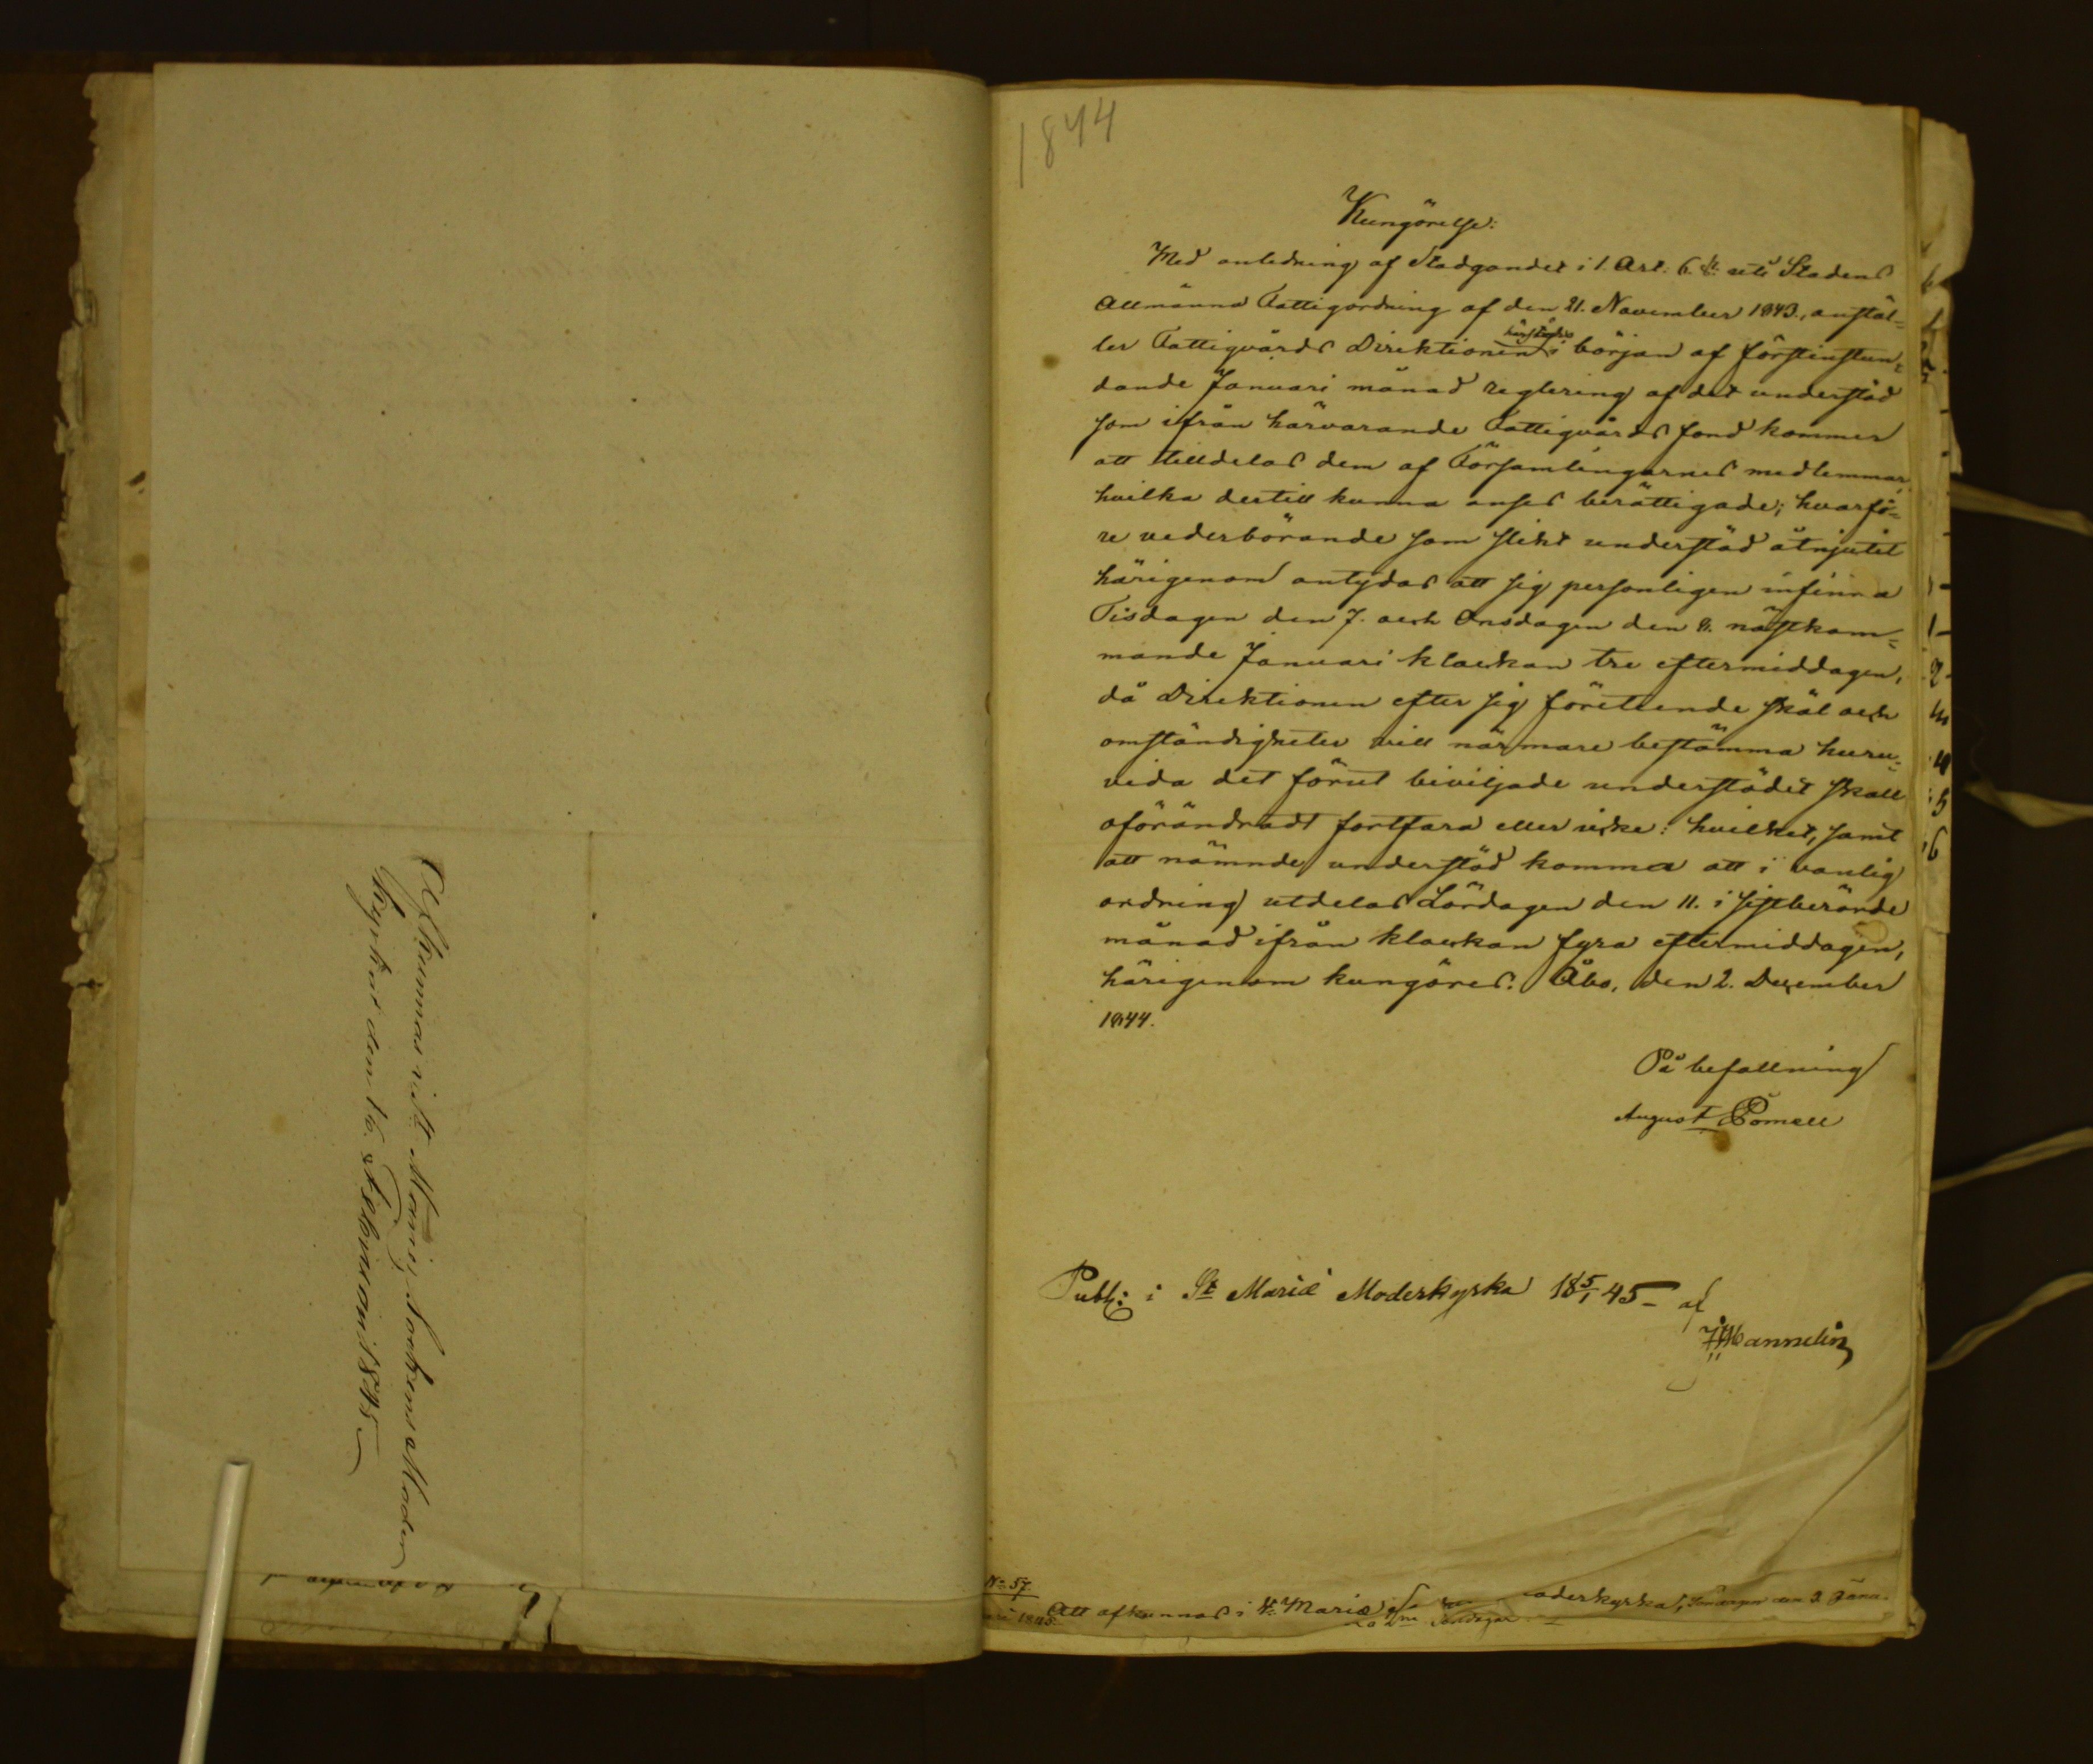 Afkunnas i St Mariæ Sockens Moder
kyrka den 16. Februari 1845
1844
Kungörelse:
Med anledning af Stadgandet i 1. Art. 6. §. uti Stadens
Allmänna Fattigordning af den 21. November 1843., anstäl-
ler Fattigvårds Direktionen härstädes i början af förstinstun-
dande Januari månad reglering af det understöd
som ifrån härvarande Fattigvårds fond kommer
att tilldelas dem af Församlingarnes medlemmar,
hvilka dertill kunna anses berättigade; hvarfö-
re vederbörande som slikt understöd åtnjutit
härigenom antydas att sig personligen infinna
Tisdagen den 7. och Onsdagen den 8. nästkom-
mande Januari klockan tre eftermiddagen,
då Direktionen efter sig företeende skäl och
omständigheter vill närmare bestämma huru-
vida det förut beviljade understödet skall
oförändradt fortfara eller icke: hvilket, samt
att nämnde understöd kommer att i vanlig
ordning utdelas Lördagen den 11. i sistberörde
månad ifrån klockan fyra eftermiddagen,
härigenom kungöres. Åbo, den 2. December
1844.
På befallning
August Pomell
Publ: i St Mariæ Moderkyrka 18 5/1 45 – af
Mannelin
No 57.
Att afkunnas i St. Mariæ oderkyrka, Söndagen den 3. Janu-
ari 1845.